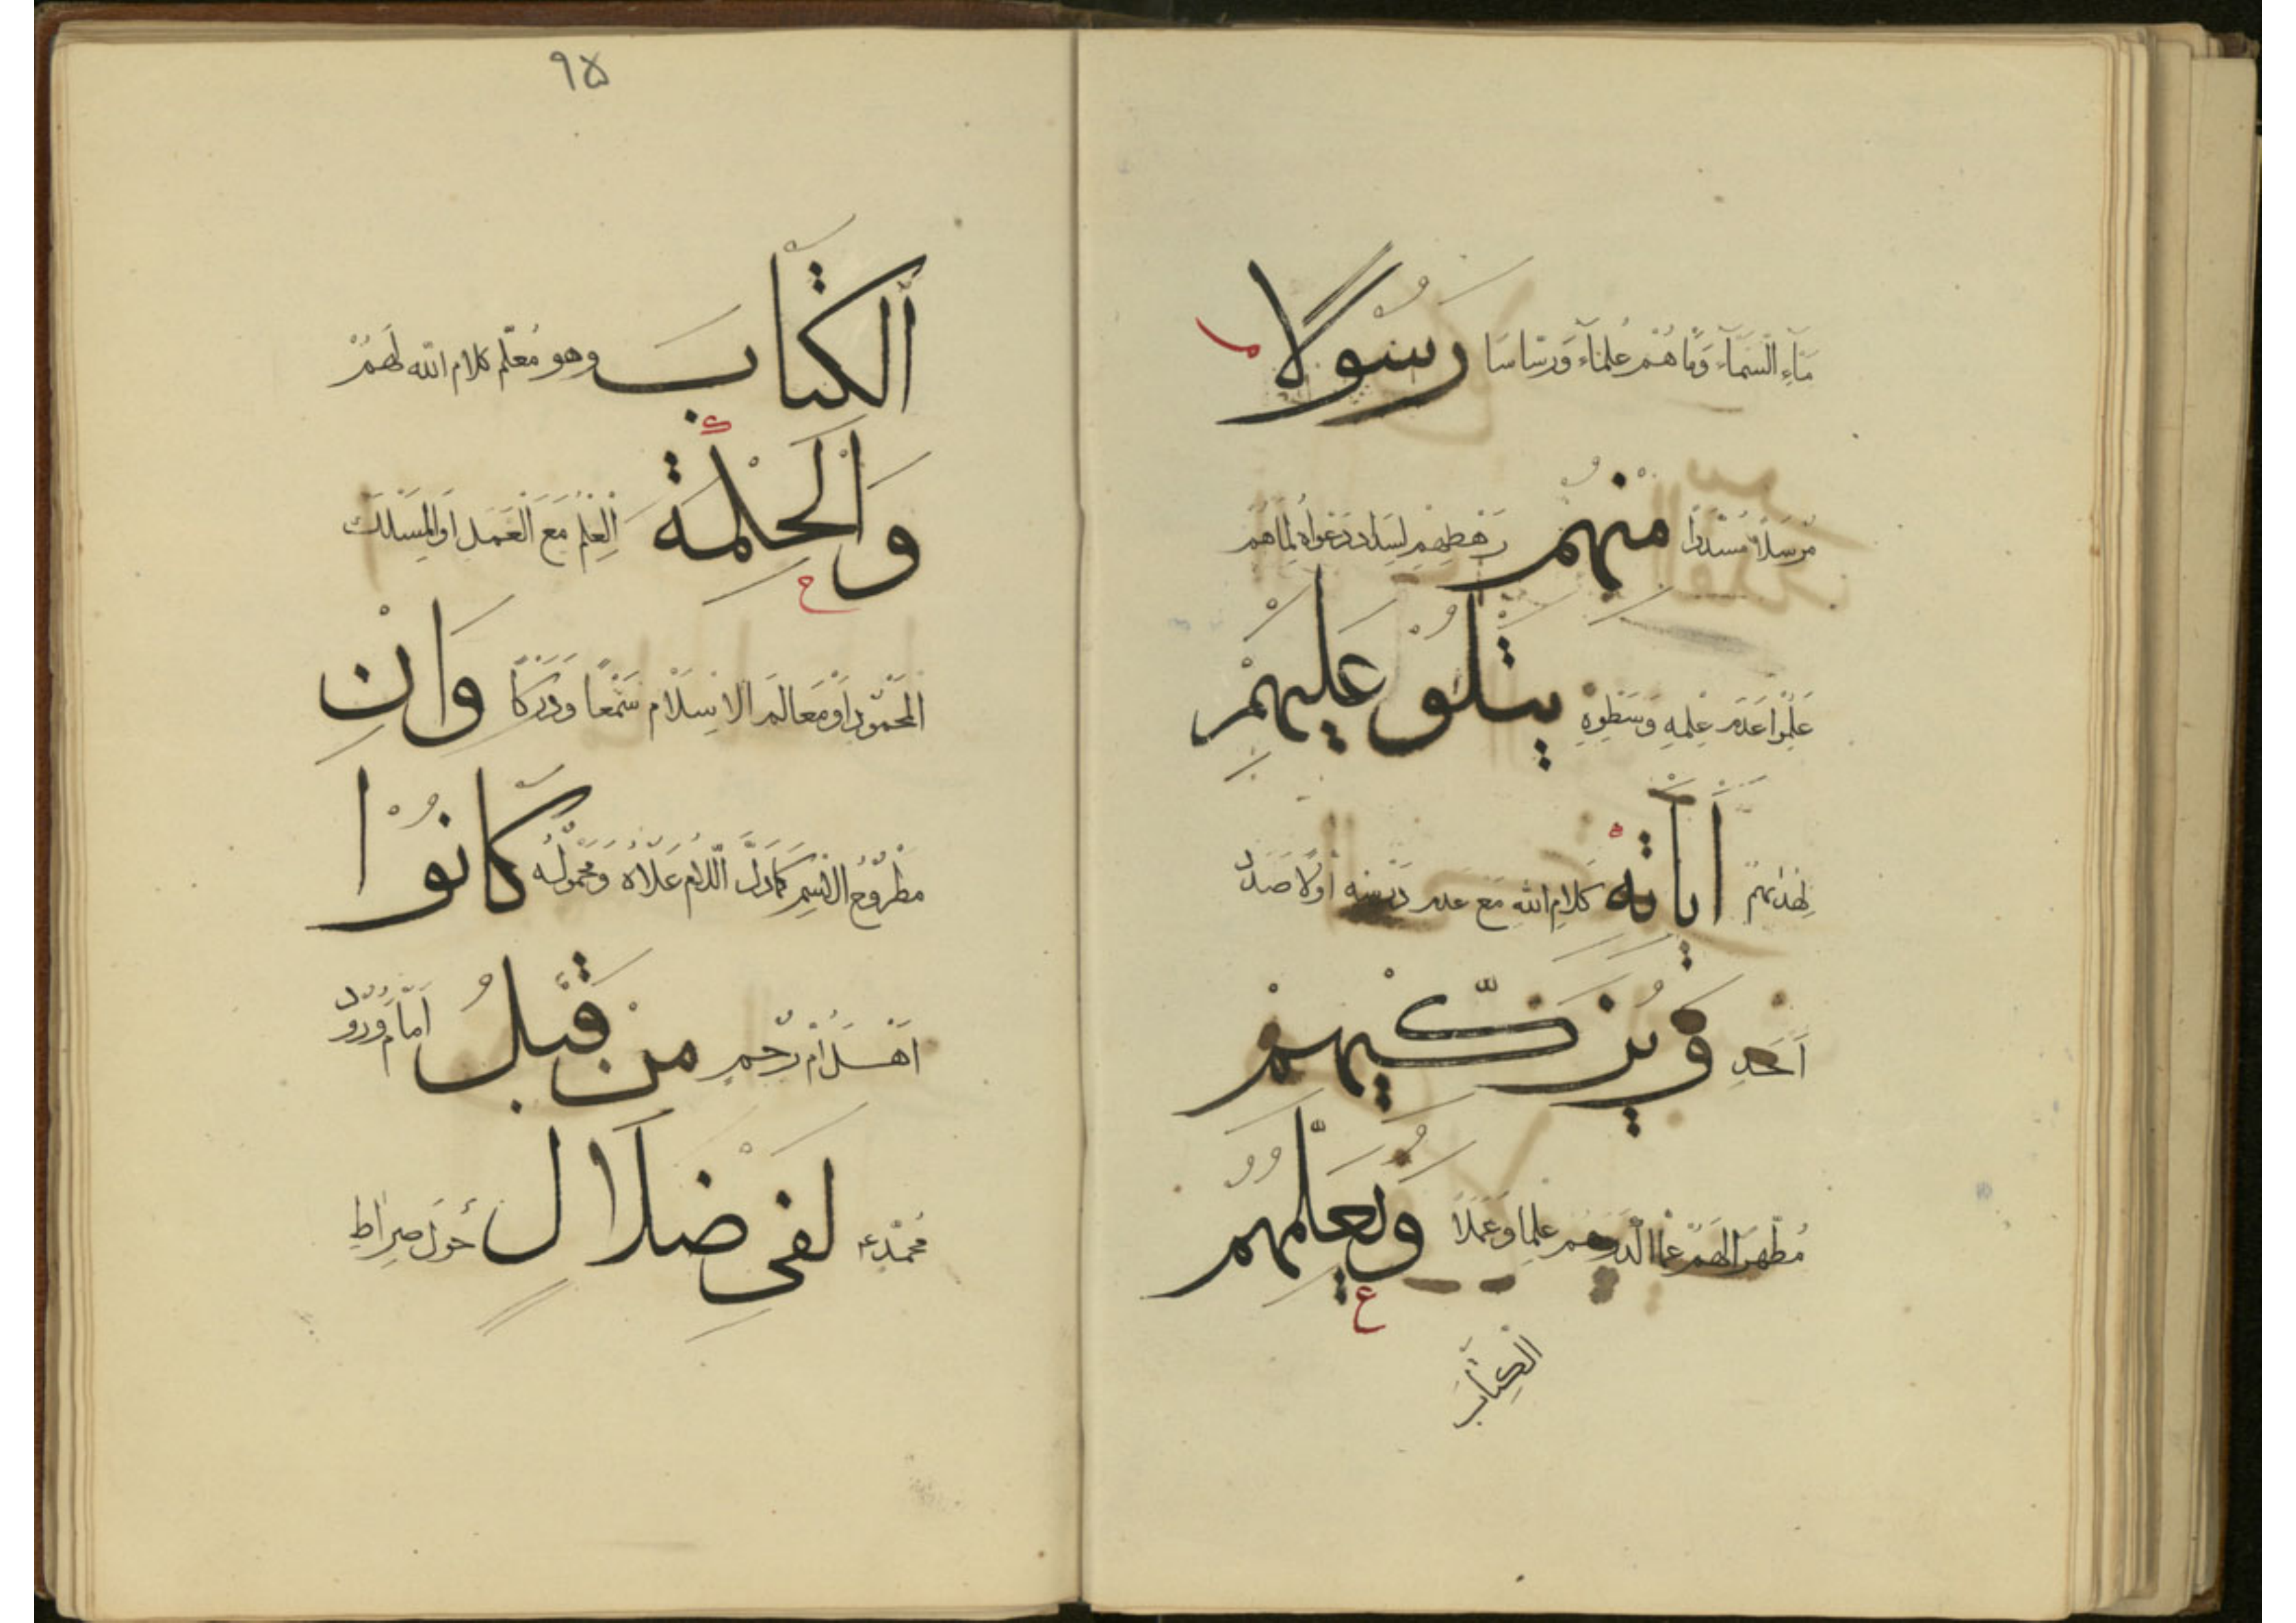 مَآءِ السَّمَآءِ وَمَا هُمْ عُلَمَآءَ وَرسَاسَا رَسُولًا
م
مُرْسَلًا مُسَدَّدًا مِنْهُمْ رَهْطِهِمْ لِسَدَادِ دَعْوَاهُ لِمَا هُمْ
عَلِمُوا عَدَمَ عِلْمِهِ وَسَطْرِهِ يَتْلُوْ عَلَيْهِمْ
لِهُدَاهُمْ اٰيَاتِهٖ كَلَامَ اللهِ مَعَ عَدَمِ دَرْسِهِ أَوَّلًا صَدَدَ
أَحَدٍ وَيُزَكِّيْهِمْ
مُطَهِّرًا لَهُمْ عَمَّا الدَّرَهُمْ عِلْمًا وَعَمَلًا وَيُعَلِّمُهُمُ
ع
الْكِتَابَ
٩٥
اَلْكِتَابَ وهو مُعَلِّم كلام الله لَهُمْ
وَالْحِكْمَةَ الْعِلْمَ مَعَ الْعَمَلِ اَوِ الْمَسْلَكَ
ح
الْمَحْمُودَ اَوْ مَعَالِمَ الْاِسْلَامِ سَمْعًا وَدَرَكًا وَاِنْ
مَطْرُوْحُ الْاِسْمِ كَمَا دَلَّ اللَّامُ عَلَاهُ وَمَحْمُوْلُهُ كَانُوْا
اَهْلَ اُمِّ رُحْمٍ مِنْ قَبْلُ اَمَامَ وُرُوْدِ
مُحَمَّدٍ ع لَفِىْ ضَلَالٍ حَوَلَ صِرَاطٍ